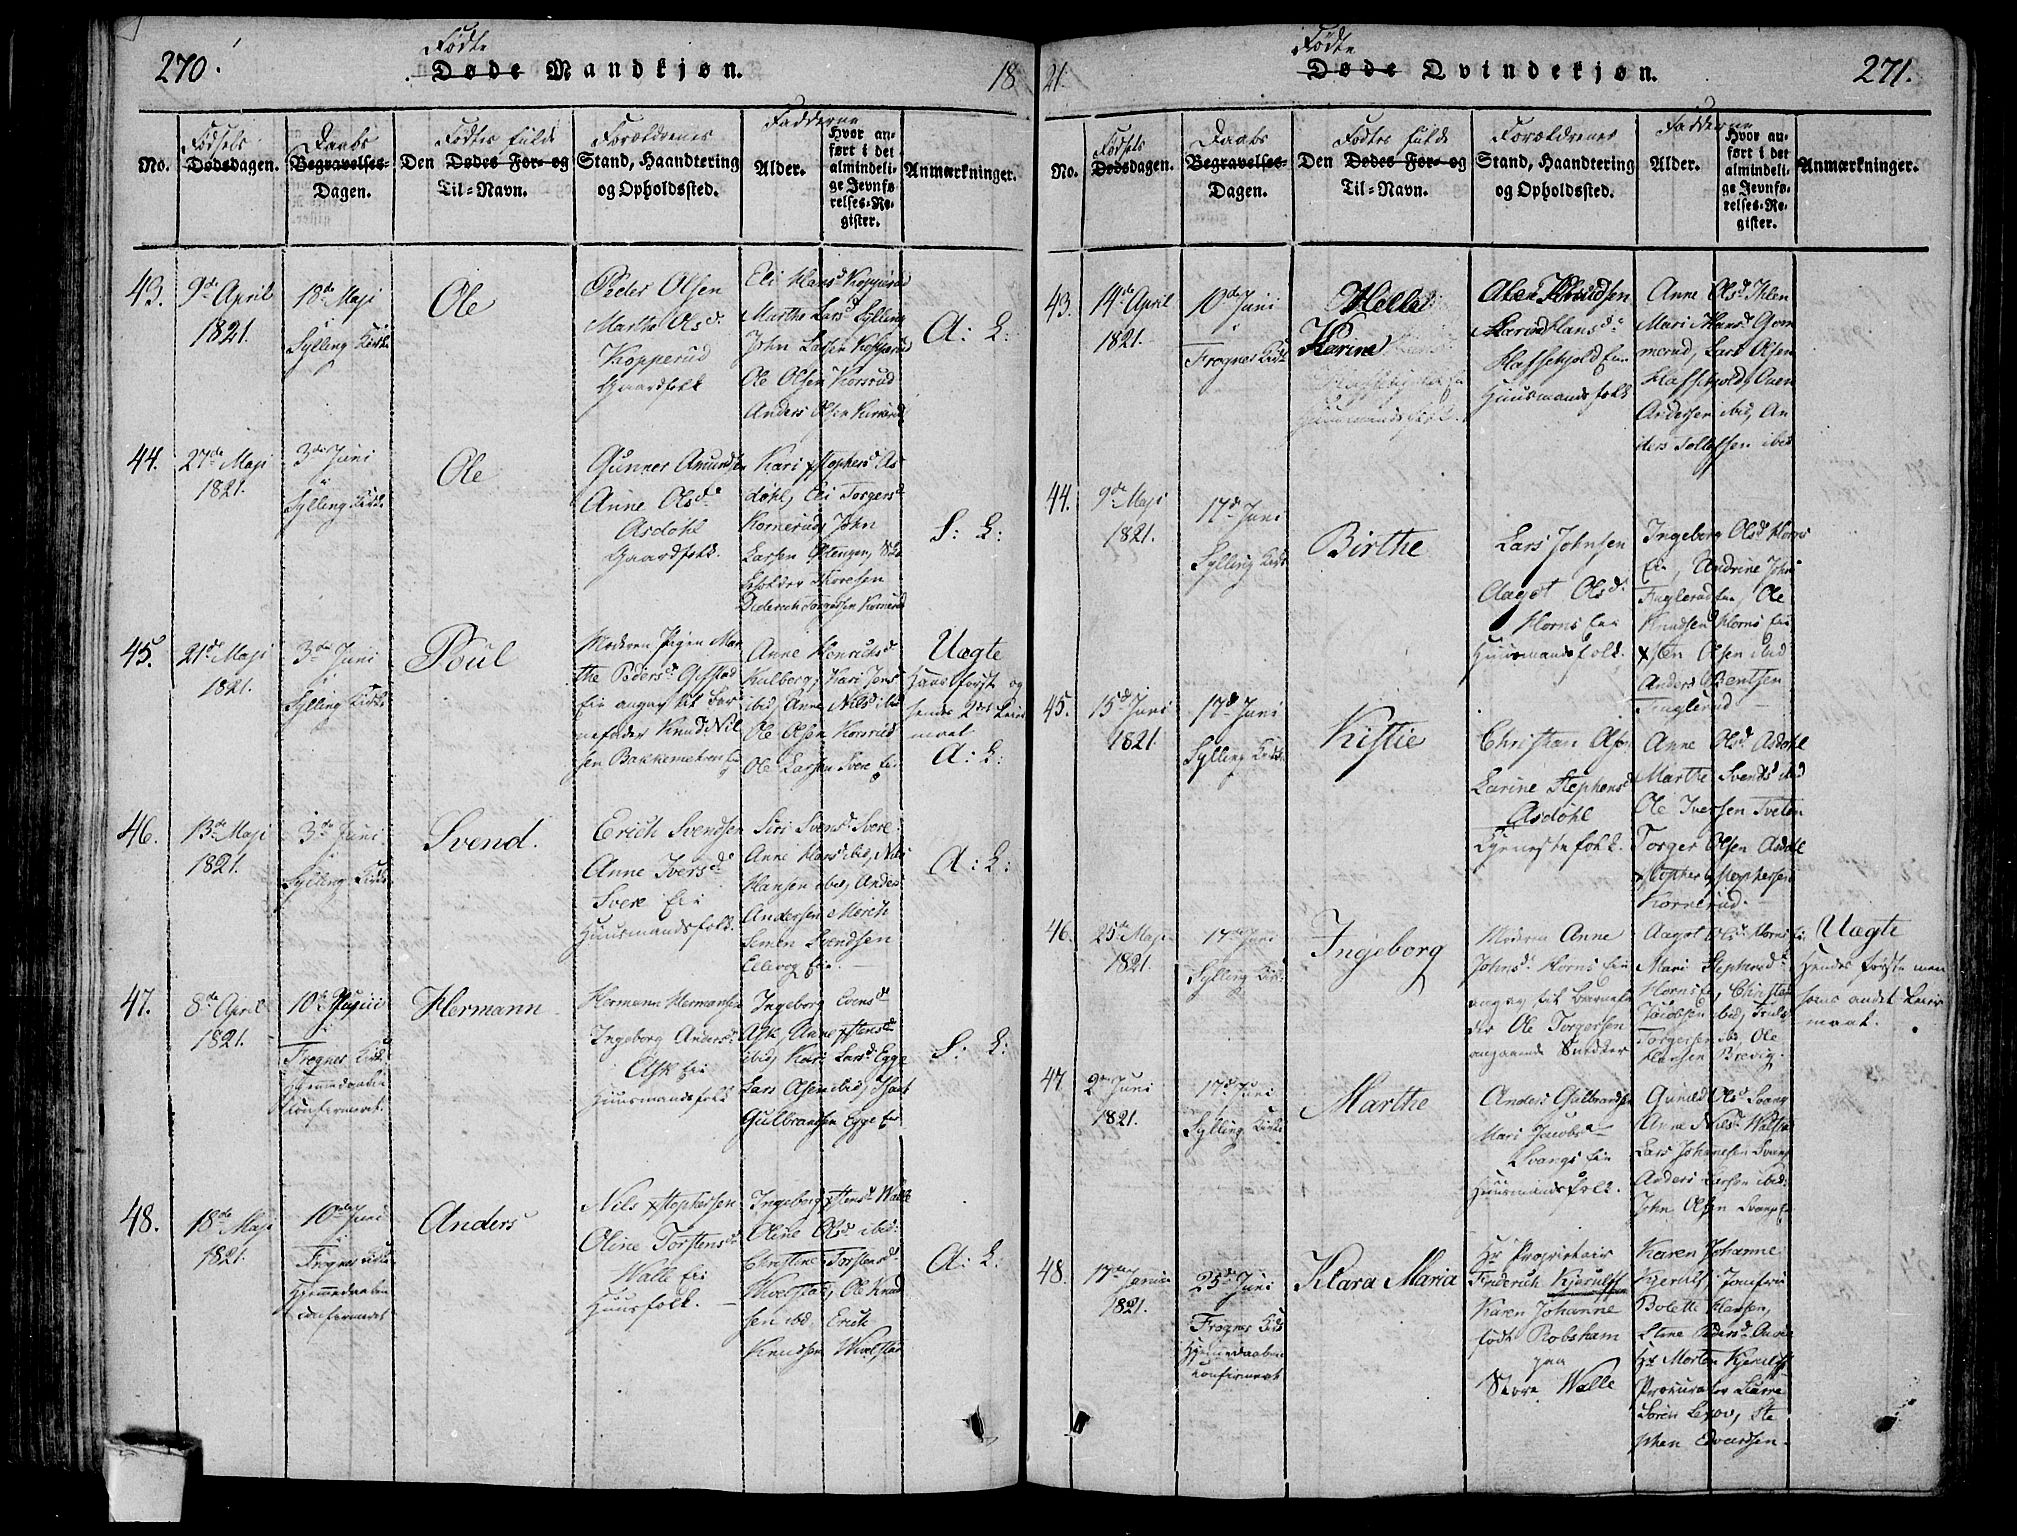 270.
Fødte
Døde Mandkjøn.
18
No.
Fødsels
Dødsdagen.
Daabs
Begravelses-
Dagen.
Fødtes fulde
Den Dødes For- og
Til-Navn.
Forældrenes
Stand, Haandtering
og Opholdssted.
Fadderne
Alder.
Hvor an-
ført i det
almindeli-
ge Jevnfø-
relses-Re-
gister.
Anmærkninger.
43.
9de April
1821.
18de Maji
Sylling Kirke
Ole
Peder Olsen
Marthe Olsd.
Kopperud
Gaardfolk
Eli Hansd Kopperud
Marthe Larsd Sylling
John Larsen Kopperud
Ole Olsen Korsrud
Anders Olsen
A: L:
44.
27de Maji
1821.
3de Juni
Sylling Kirke
Ole
Gunner Amundsen
Anne Olsd.
Asdohl
Gaardfolk.
Kari Stephersd As-
dohl, Eli Torgersd
Kornerud, John
Larsen Østengen,
Thoresen
Diderich Torgersen Kornerud
S: L:
45.
21de Maji
1821.
3de Juni
Sylling Kirke
Poul
Moderen Pigen Mar-
the Pedersd. Gifstad
Eie angav til Bar-
nefader Knud Nil-
sen Bakkemetren Eie
Anne Henrichsd
Kulberg, Kari Jensd
ibid, Anne Nilsd ibid
Ole Olsen Korsrud
Ole Larsen Svere Eie.
Uægte
Hans først og
hendes 2det Leier-
maal.
A: L:
46.
13de Maji
1821.
3de Juni
Sylling Kirke
Svend.
Erich Svendsen
Anne Iversd.
Svere Eie
Huusmandsfolk.
Siri Svensd Svere.
Anne Hansd ibid, Nils
Hansen ibid, Anders
Andersen Mørch
Simen Svendsen
Eie.
A: L:
47.
8de April
1821.
10de Junii
Frogner Kirke
Hjemmedaaben
Confirmeret.
Hermann
Hermann Hermansen
Ingeborg Andersd:
Ask Eie
Huusmandsfolk
Ingeborg Evensd
Ask, Anne Stensd
ibid, Kari Larsd Egge
Lars Olsen ibid,
Gulbransen Egge Eie
S: L:
48.
18de Maji
1821.
10de Juni
Frogner Kirke
Hjemmedaaben
Confirmeret
Anders
Nils Stephersen
Oline Torstensd
Walle Eie
Huusfolk.
Ingeborg Stensd Walle
Oline Olsd ibid:
Christine Torstensd
Wivelstad, Ole Knud-
sen ibid, Erich
Knudsen Wivelstad
A: L:
21.
Fødte
Døde Qvindekjøn.
271.
No.
Fødsels
Dødsdagen.
Daabs
Begravelses-
Dagen.
Fødtes fulde
Den Dødes For- og
Til-Navn.
Forældrenes
Stand, Haandtering
og Opholdssted.
Fadderne
Alder.
Hvor an-
ført i det
almindeli-
ge Jevnfø-
relses-Re-
gister.
Anmærkninger.
43.
14de April
1821.
10de Juni
Frogner Kirke
Helle
Karine
Knudsen
Karine Hansd.
Haffskjold Eie
Huusmandsfolk
Anne Olsd Ihlen
Mari Hansd Gom-
merud, Lars Olsen
Haffskjold,
Andersen ibid, An-
ders Tollefsen ibid
44.
9de Maji
1821.
17de Juni
Sylling Kirke
Birthe
Lars Johnsen
Aagot Olsd.
Horns Eie
Huusmandsfolk.
Ingeborg Olsd Horns
Eie, Andrine Johnsd
Fuglerud Eie, Ole
Knudsen Horns Eie
Sten Olsen ibid
Anders Bentsen
Fuglerud
45.
15de Juni
1821.
17de Juni
Sylling Kirke
Kistie
Christian Olsen
Karine Stephensd
Asdøhl
Tjenestefolk.
Anne Olsd. Asdøhl
Marthe Svendsd ibid
Ole Iversen Tveten
Torger Olsen Asdøhl
Stopher Stophersen
Kornerud.
46.
25de Maji
1821.
17de Juni
Sylling Kirke
Ingeborg
Moderen Anne
Johnsd. Horns Eie
angav til Barnefa-
der Ole Torgersen
Snedker
Aagot Olsd Horns Eie.
Mari Stephersd.
Horns Eie, Christen
Jacobsen ibid,
Torgersen ibid, Ole
Hansen Bredvig.
Uægte
Hendes første men
hans andet Leier-
maal.
47.
2den Juni
1821.
17de Juni
Sylling Kirke
Marthe
Anders Gulbrandsen
Mari Jacobsd
Svangs Eie
Huusmandsfolk.
Gunild Olsd. Svang
Anne Nilsd
Lars Johnnesen Svang
Anders Larsen ibid.
John Olsen Svang Eie
48.
17de
1821.
25de Juni
Frogner Kirke
Hjemmedaaben
Confirmeret
Klara Maria
Hr Proprietair
Friderich Kjerulff
Karen Johanne
født Robsham
paa
Store Walle
Karen Johanne
Kjerulf, Jomfru
Bolette Hansen,
Stine Pedersd.
Hr Morten Kjerulff
Procurator
Søren Lexov, Ste-
phen Edvardsen.